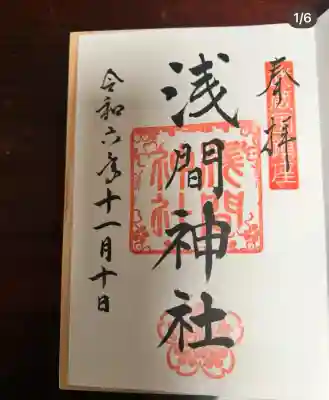 1/6
奉拝
浅間神社
浅間神社
令和六年十一月十日